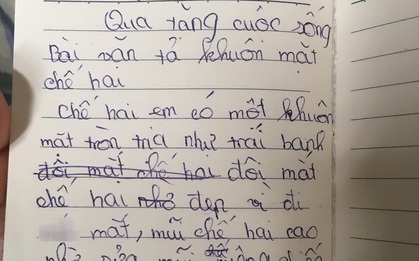 Qua tặng cuộc sống
Bài văn tả khuôn mặt
chế hai
chế hai em có một khuôn
mặt tròn trịa như trái banh
đôi mặt chế hai đôi mắt
chế hai nhỏ đẹp vì di
mắt, mũi chế hai cao